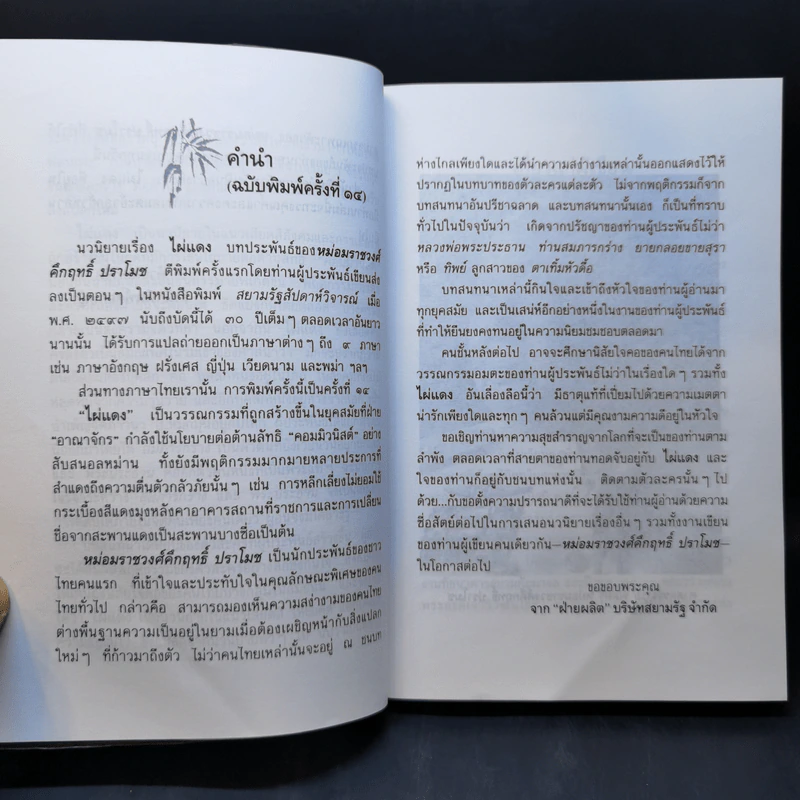 คำนำ
(ฉบับพิมพ์ครั้งที่ ๑๔)
นวนิยายเรื่อง ไผ่แดง บทประพันธ์ของหม่อมราชวงศ์
คึกฤทธิ์ ปราโมช ตีพิมพ์ครั้งแรกโดยท่านผู้ประพันธ์เขียนส่ง
ลงเป็นตอนๆ ในหนังสือพิมพ์ สยามรัฐสัปดาห์วิจารณ์ เมื่อ
พ.ศ. ๒๔๙๗ นับถึงบัดนี้ได้ ๓๐ ปีเต็มๆ ตลอดเวลาอันยาว
นานนั้น ได้รับการแปลถ่ายออกเป็นภาษาต่างๆ ถึง ๙ ภาษา
เช่น ภาษาอังกฤษ ฝรั่งเศส ญี่ปุ่น เวียดนาม และพม่า ฯลฯ
ส่วนทางภาษาไทยเรานั้น การพิมพ์ครั้งนี้เป็นครั้งที่ ๑๔
“ไผ่แดง” เป็นวรรณกรรมที่ถูกสร้างขึ้นในยุคสมัยที่ฝ่าย
“อาณาจักร” กำลังใช้นโยบายต่อต้านลัทธิ “คอมมิวนิสต์” อย่าง
สับสนอลหม่าน ทั้งยังมีพฤติกรรมมากมายหลายประการที่
สำแดงถึงความตื่นตัวกลัวภัยนั้นๆ เช่น การหลีกเลี่ยงไม่ยอมใช้
กระเบื้องสีแดงมุงหลังคาอาคารสถานที่ราชการและการเปลี่ยน
ชื่อจากสะพานแดงเป็นสะพานบางซื่อเป็นต้น
หม่อมราชวงศ์คึกฤทธิ์ ปราโมช เป็นนักประพันธ์ของชาว
ไทยคนแรก ที่เข้าใจและประทับใจในคุณลักษณะพิเศษของคน
ไทยทั่วไป กล่าวคือ สามารถมองเห็นความสง่างามของคนไทย
ต่างพื้นฐานความเป็นอยู่ในยามเมื่อต้องเผชิญหน้ากับสิ่งแปลก
ใหม่ๆ ที่ก้าวมาถึงตัว ไม่ว่าคนไทยเหล่านั้นจะอยู่ ณ ชนบท
ห่างไกลเพียงใดและได้นำความสง่างามเหล่านั้นออกแสดงไว้ให้
ปรากฏในบทบาทของตัวละครแต่ละตัว ไม่จากพฤติกรรมก็จาก
บทสนทนาอันปรีชาฉลาด และบทสนทนานั้นเอง ก็เป็นที่ทราบ
ทั่วไปในปัจจุบันว่า เกิดจากปรัชญาของท่านผู้ประพันธ์ไม่ว่า
หลวงพ่อพระประธาน ท่านสมภารกร่าง ยายกลอยขายสุรา
หรือ ทิพย์ ลูกสาวของ ตาเทิ้มหัวดื้อ
บทสนทนาเหล่านี้กินใจและเข้าถึงหัวใจของท่านผู้อ่านมา
ทุกยุคสมัย และเป็นเสน่ห์อีกอย่างหนึ่งในงานของท่านผู้ประพันธ์
ที่ทำให้ยืนยงคงทนอยู่ในความนิยมชมชอบตลอดมา
คนชั้นหลังต่อไป อาจจะศึกษานิสัยใจคอของคนไทยได้จาก
วรรณกรรมอมตะของท่านผู้ประพันธ์ไม่ว่าในเรื่องใดๆ รวมทั้ง
ไผ่แดง อันเลื่องลือนี้ว่า มีธาตุแท้ที่เปี่ยมไปด้วยความเมตตา
น่ารักเพียงใดและทุกๆ คนล้วนแต่มีคุณงามความดีอยู่ในหัวใจ
ขอเชิญท่านหาความสุขสำราญจากโลกที่จะเป็นของท่านตาม
ลำพัง ตลอดเวลาที่สายตาของท่านทอดจับอยู่กับ ไผ่แดง และ
ใจของท่านก็อยู่กับชนบทแห่งนั้น ติดตามตัวละครนั้นๆ ไป
ด้วย...กับขอตั้งความปรารถนาดีที่จะได้รับใช้ท่านผู้อ่านด้วยความ
ซื่อสัตย์ต่อไปในการเสนอนวนิยายเรื่องอื่นๆ รวมทั้งงานเขียน
ของท่านผู้เขียนคนเดียวกัน—หม่อมราชวงศ์คึกฤทธิ์ ปราโมช—
ในโอกาสต่อไป
ขอขอบพระคุณ
จาก “ฝ่ายผลิต” บริษัทสยามรัฐ จำกัด